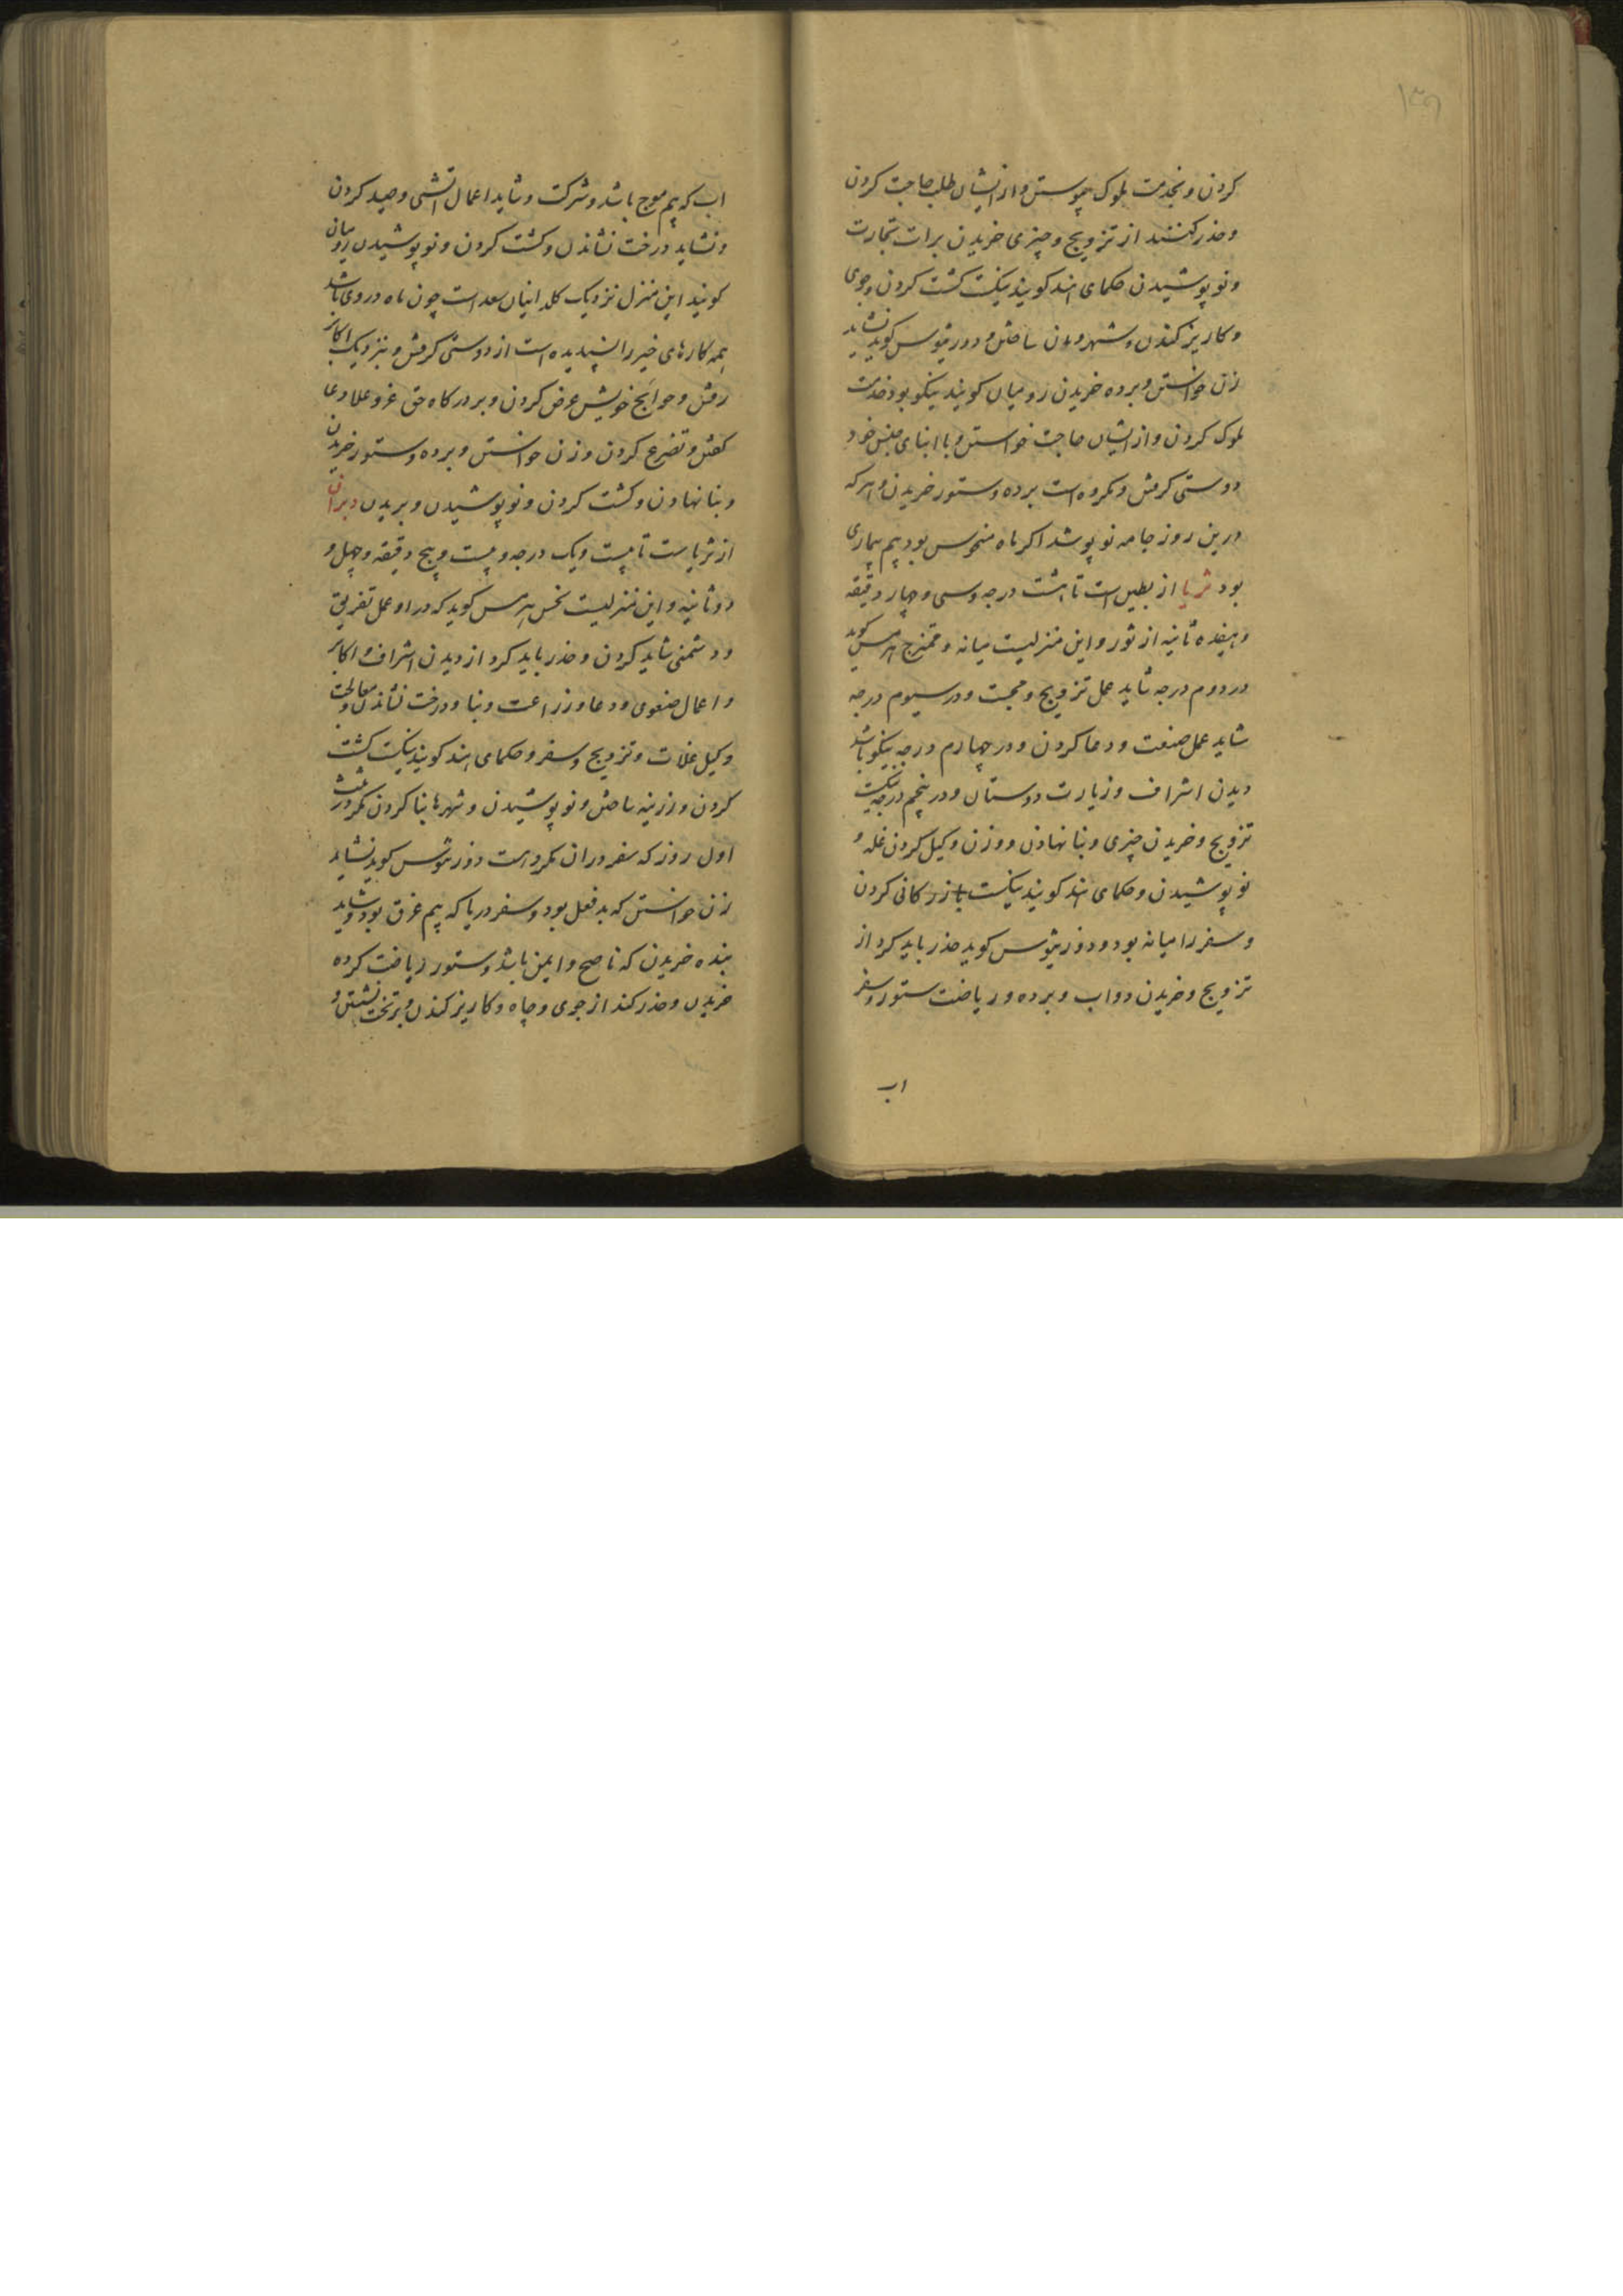 ۱۳۹
کردن و بخدمت ملوک پیوستن و از ایشان طلب حاجت کردن
و حذر کنند از تزویج و چیزی خریدن برات تجارت
و نو پوشیدن حکمای هند کویند نیکست کشت کردن و جوی
و کاریز کندن و شهر و ساختن و دورریتوس کوید نشاید
زن خواستن و برده خریدن رومیان کویند نیکو بود خدمت
ملوک کردن و از ایشان حاجت خواستن و با ابنای جنس خود
دوستی کرفتن و مکروه است برده و ستور خریدن و هر که
درین روز جامه نو پوشد اکر ماه منحوس بود بیم بیماری
بود ثریا از بطین است تا هشت درجه و سی و چهار دقیقه
و هیفده ثانیه از ثور و این منزلیست میانه و ممتزج هرمس کوید
در دوم درجه شاید عمل تزویج و محبت و در سیوم درجه
شاید عمل صنعت و دعا کردن و در چهارم درجه نیکو باشد
دیدن اشراف و زیارت دوستان و در پنجم درجه نیکست
تزویج و خریدن چیزی و بنا نهادن و وزن و کیل کردن غله و
نو پوشیدن و حکمای هند کویند نیکست بازرکانی کردن
و سفر را میانه بود و دورریتوس کوید حذر باید کرد از
تزویج و خریدن دواب و برده و ریاضت ستور و سفر
اب
اب که بیم موج باشد و شرکت و شاید اعمال اتشی و صید کردن
و نشاید درخت نشاندن و کشت کردن و نو پوشیدن رومیان
کویند این منزل نزدیک کلدانیان سعد است چون ماه در وی باشد
همه کارهای خیر را پسندیده است از دوستی کرفتن و بنزدیک اکابر
رفتن و حوایج خویش عرض کردن و بر درکاه حق عز و علا دعا
کفتن و تضرع کردن و زن خواستن و برده و ستور خریدن
و بنا نهادن و کشت کردن و نو پوشیدن و بریدن دبران
از ثریاست تا بیست و یک درجه و بیست و پنج دقیقه و چهل و
دو ثانیه و این منزلیست نحس هرمس کوید که در او عمل تفریق
و دشمنی شاید کردن و حذر باید کرد از دیدن اشراف و اکابر
و اعمال صنعوی و دعا و زراعت و بنا و درخت نشاندن و معالجت
و کیل غلات و تزویج و سفر و حکمای هند کویند نیکست کشت
کردن و زرینه ساختن و نو پوشیدن و شهرها بنا کردن مکر در ثلث
اول روز که سفر در ان مکروهست دورریتوس کوید نشاید
زن خواستن که بد فعل بود و سفر دریا که بیم غرق بود و شاید
بنده خریدن که ناصح و ایمن باشد و ستور ریاضت کرده
خریدن و حذر کند از جوی و چاه و کاریز کندن و بر تخت نشستن و